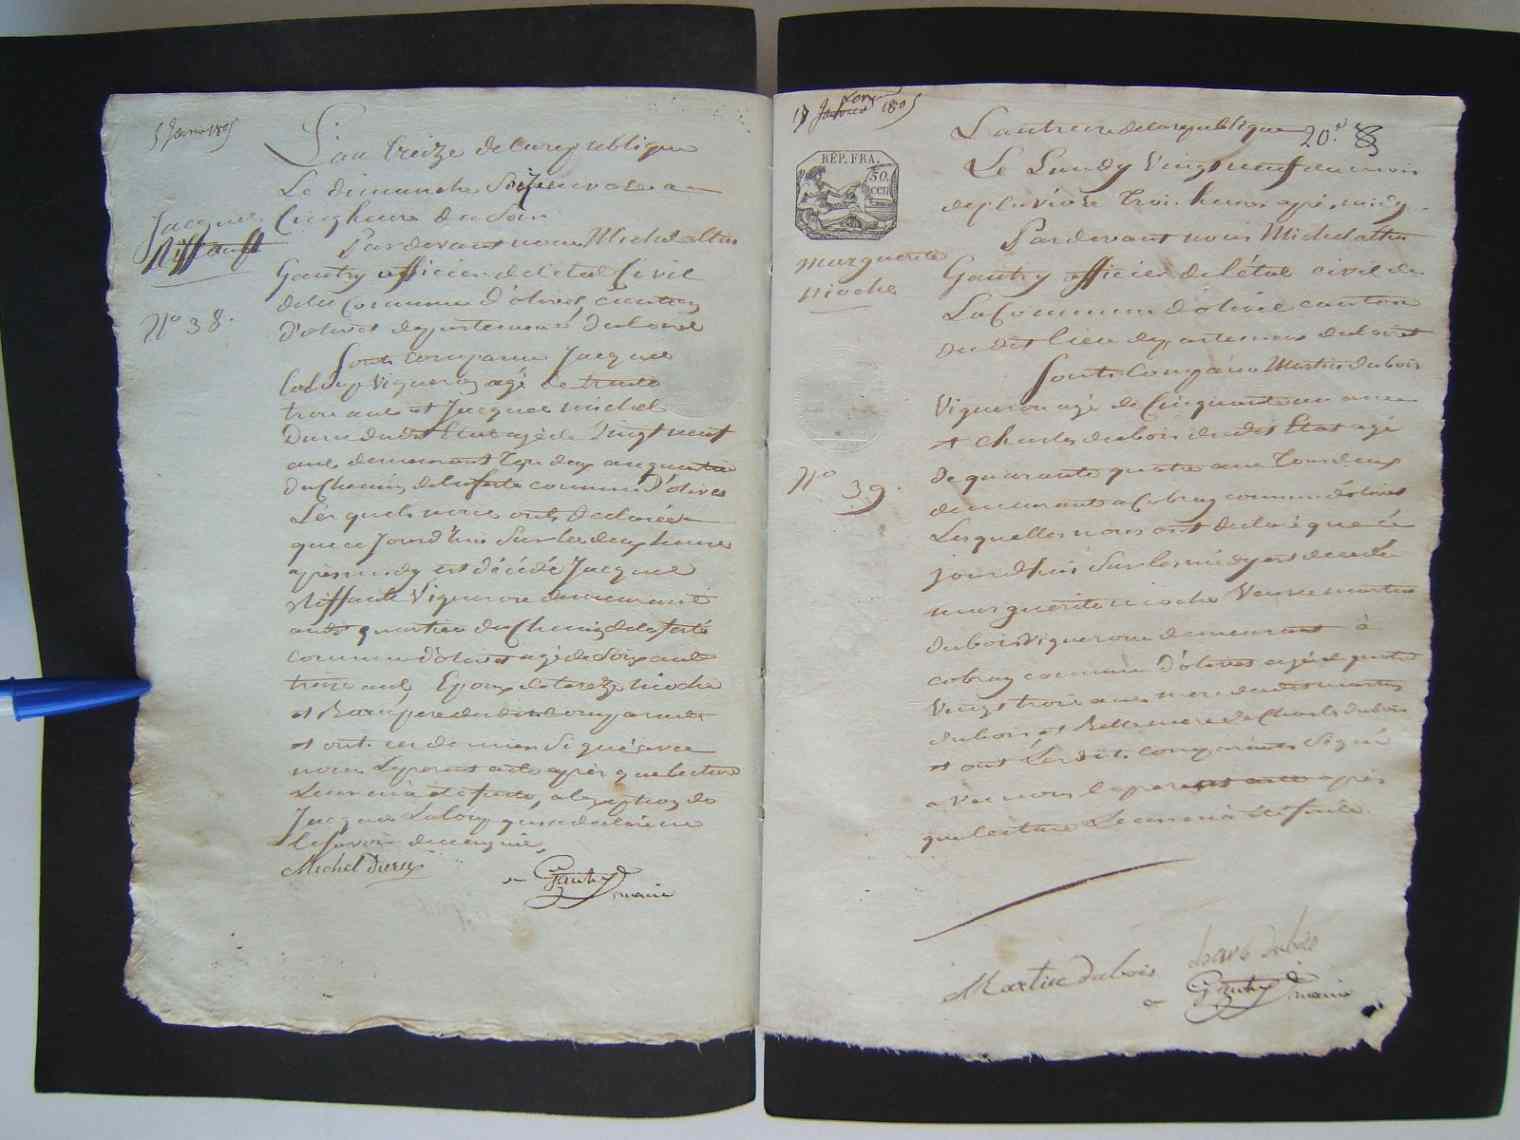 5 Janvier 1805
L'an treize de la republique
Le dimanche Seize nivose a
Cinq heures du Soir
Jacques
Riffault
N° 38.
Pardevant nous Michel altin
Gautry officier de l'état Civil
de la Commune d'olivet, canton
d'olivet departement du Loiret
Sont comparu Jacques
Laloup Vigneron agé de trente
trois ans et Jacques michel
Duru dudit Etat agé de Vingt neuf
ans demeurant Tou deux au quartier
du Chemin de la ferté commune d'olivet
Lesquels nous ont declarée
que ce Jourd'hui Sur les deux heures
apres midy est décédé Jacques
Riffault Vigneron demeurant
audit quartier du Chemin de la ferté
commune d'olivet agé de Soixante
treize ans Epoux de tereze nioche
et Beaupere du dit comparant
et ont ce dernier Signé avec
nous Le present acte après que lecture
Leur en a été faite, a l'exeption de
Jacques Laloup qui a declaré ne
le Savoir de ce enquis
Michel Duru
Gautry
maire
1805
L'an treize de la republique
20.e
RÉP. FRA.
50.
cen
Le Lundy Vingt neuf du mois
de pluviose trois heures apré midy
marguerite
nioche
N°
39.
Pardevant nous Michel altin
Gautry officier de l'état civil de
La Commune d'olivet canton
du dit lieu departement du Loiret
Sont Comparu Martin dubois
Vigneron agé de Cinquante un ans
et Charles dubois dudit Etat agé
de quarante quatre ans Tous deux
demeurant a Cobray commune d'olivet
Lesquelles nous ont declaré que ce
jourdhui Sur les midy est decedé
marguerite nioche Veuve martin
dubois Vigneron demeurant à
cobray commune d'olivet agé de quatre
Vingt trois ans mere dudit martin
dubois et Bellemere de Charles dubois
et ont Les dit. comparants Signé
avec nous le present acte après
que lecture Leur en a été faite.
Martin dubois
charle dubois
Gautry
maire